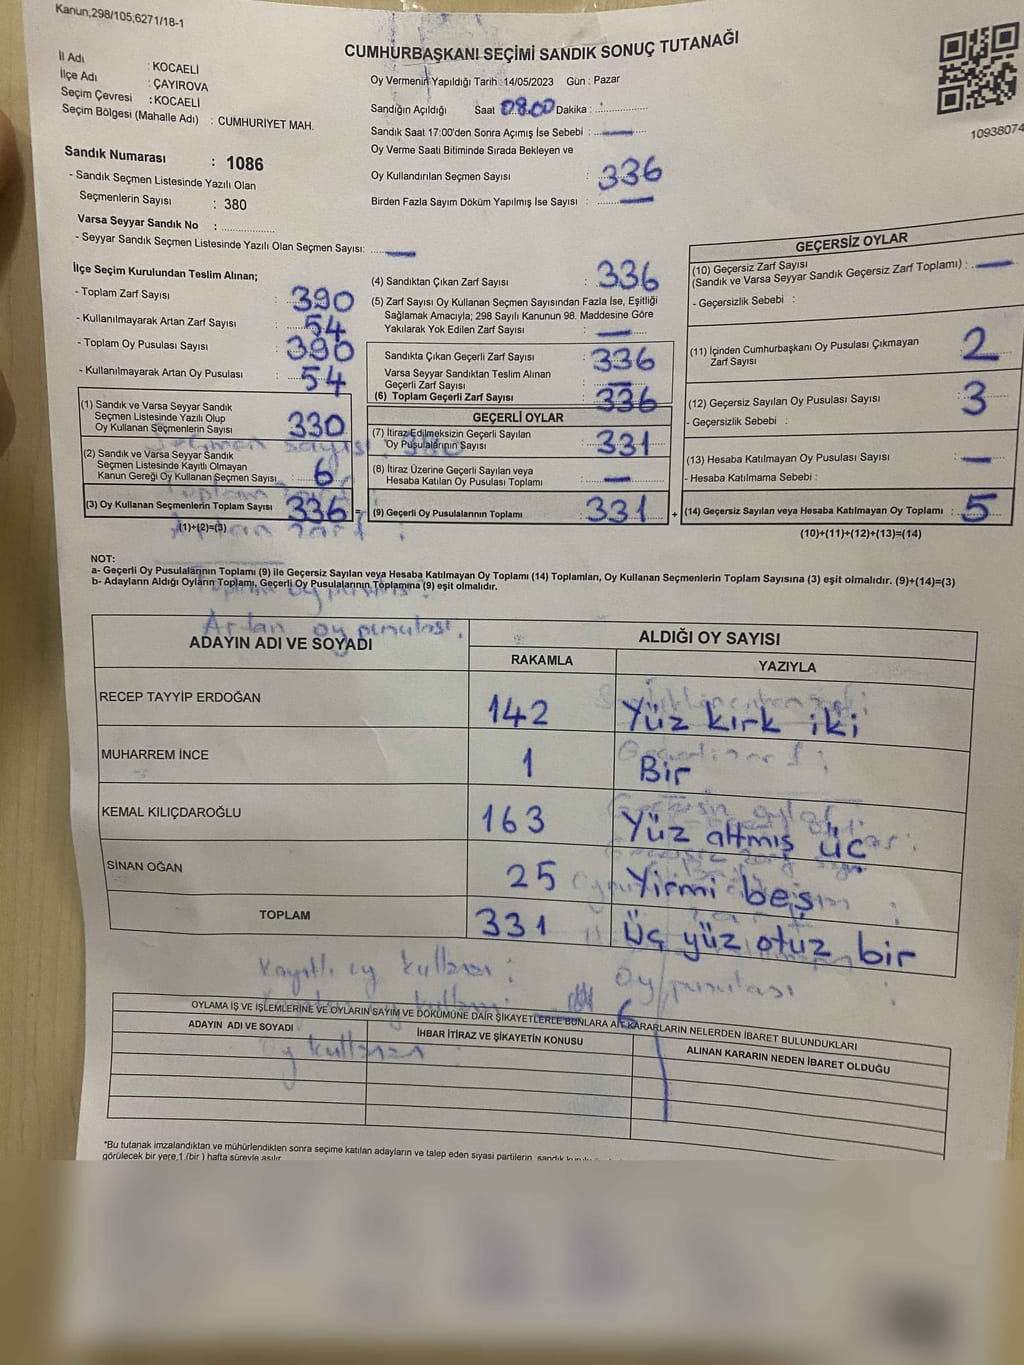 Kanun;298/105;6271/18-1
CUMHURBAŞKANI SEÇİMİ SANDIK SONUÇ TUTANAĞI
İl Adı : KOCAELİ
İlçe Adı : ÇAYIROVA
Seçim Çevresi : KOCAELİ
Seçim Bölgesi (Mahalle Adı) : CUMHURİYET MAH.
Sandık Numarası : 1086
- Sandık Seçmen Listesinde Yazılı Olan
Seçmenlerin Sayısı : 380
Varsa Seyyar Sandık No :
- Seyyar Sandık Seçmen Listesinde Yazılı Olan Seçmen Sayısı: —
Oy Vermenin Yapıldığı Tarih :14/05/2023 Gün : Pazar
Sandığın Açıldığı Saat 08.00 Dakika :
Sandık Saat 17:00'den Sonra Açımış İse Sebebi : —
Oy Verme Saati Bitiminde Sırada Bekleyen ve
Oy Kullandırılan Seçmen Sayısı : 336
Birden Fazla Sayım Döküm Yapılmış İse Sayısı : —
10938074
İlçe Seçim Kurulundan Teslim Alınan;
- Toplam Zarf Sayısı : 390
- Kullanılmayarak Artan Zarf Sayısı : 54
- Toplam Oy Pusulası Sayısı : 390
- Kullanılmayarak Artan Oy Pusulası : 54
(1) Sandık ve Varsa Seyyar Sandık
Seçmen Listesinde Yazılı Olup
Oy Kullanan Seçmenlerin Sayısı : 330
(2) Sandık ve Varsa Seyyar Sandık
Seçmen Listesinde Kayıtlı Olmayan
Kanun Gereği Oy Kullanan Seçmen Sayısı : 6
(3) Oy Kullanan Seçmenlerin Toplam Sayısı 336
(1)+(2)=(3)
(4) Sandıktan Çıkan Zarf Sayısı : 336
(5) Zarf Sayısı Oy Kullanan Seçmen Sayısından Fazla İse, Eşitliği
Sağlamak Amacıyla; 298 Sayılı Kanunun 98. Maddesine Göre
Yakılarak Yok Edilen Zarf Sayısı : —
Sandıkta Çıkan Geçerli Zarf Sayısı : 336
Varsa Seyyar Sandıktan Teslim Alınan
Geçerli Zarf Sayısı : —
(6) Toplam Geçerli Zarf Sayısı : 336
GEÇERLİ OYLAR
(7) İtiraz Edilmeksizin Geçerli Sayılan
Oy Pusulalarının Sayısı : 331
(8) İtiraz Üzerine Geçerli Sayılan veya
Hesaba Katılan Oy Pusulası Toplamı : —
= (9) Geçerli Oy Pusulalarının Toplamı : 331
GEÇERSİZ OYLAR
(10) Geçersiz Zarf Sayısı
(Sandık ve Varsa Seyyar Sandık Geçersiz Zarf Toplamı) : —
- Geçersizlik Sebebi :
(11) İçinden Cumhurbaşkanı Oy Pusulası Çıkmayan
Zarf Sayısı : 2
(12) Geçersiz Sayılan Oy Pusulası Sayısı : 3
- Geçersizlik Sebebi :
(13) Hesaba Katılmayan Oy Pusulası Sayısı : —
- Hesaba Katılmama Sebebi :
+ (14) Geçersiz Sayılan veya Hesaba Katılmayan Oy Toplamı : 5
(10)+(11)+(12)+(13)=(14)
NOT:
a- Geçerli Oy Pusulalarının Toplamı (9) ile Geçersiz Sayılan veya Hesaba Katılmayan Oy Toplamı (14) Toplamları, Oy Kullanan Seçmenlerin Toplam Sayısına (3) eşit olmalıdır. (9)+(14)=(3)
b- Adayların Aldığı Oyların Toplamı, Geçerli Oy Pusulalarının Toplamına (9) eşit olmalıdır.
Artan oy pusulası.
ADAYIN ADI VE SOYADI
ALDIĞI OY SAYISI
RAKAMLA YAZIYLA
RECEP TAYYİP ERDOĞAN 142 Yüz kırk iki
MUHARREM İNCE 1 Bir
KEMAL KILIÇDAROĞLU 163 Yüz altmış üc
SİNAN OĞAN 25 Yirmi beş
TOPLAM 331 Üç yüz otuz bir
Kayıtlı oy kullanan : oy pusulası
OYLAMA İŞ VE İŞLEMLERİNE VE OYLARIN SAYIM VE DÖKÜMÜNE DAİR ŞİKAYETLERLE BUNLARA AİT KARARLARIN NELERDEN İBARET BULUNDUKLARI
ADAYIN ADI VE SOYADI İHBAR İTİRAZ VE ŞİKAYETİN KONUSU ALINAN KARARIN NEDEN İBARET OLDUĞU
oy kullanan
*Bu tutanak imzalandıktan ve mühürlendikten sonra seçime katılan adayların ve talep eden siyasi partilerin, sandık
görülecek bir yere 1 (bir ) hafta süreyle asılır